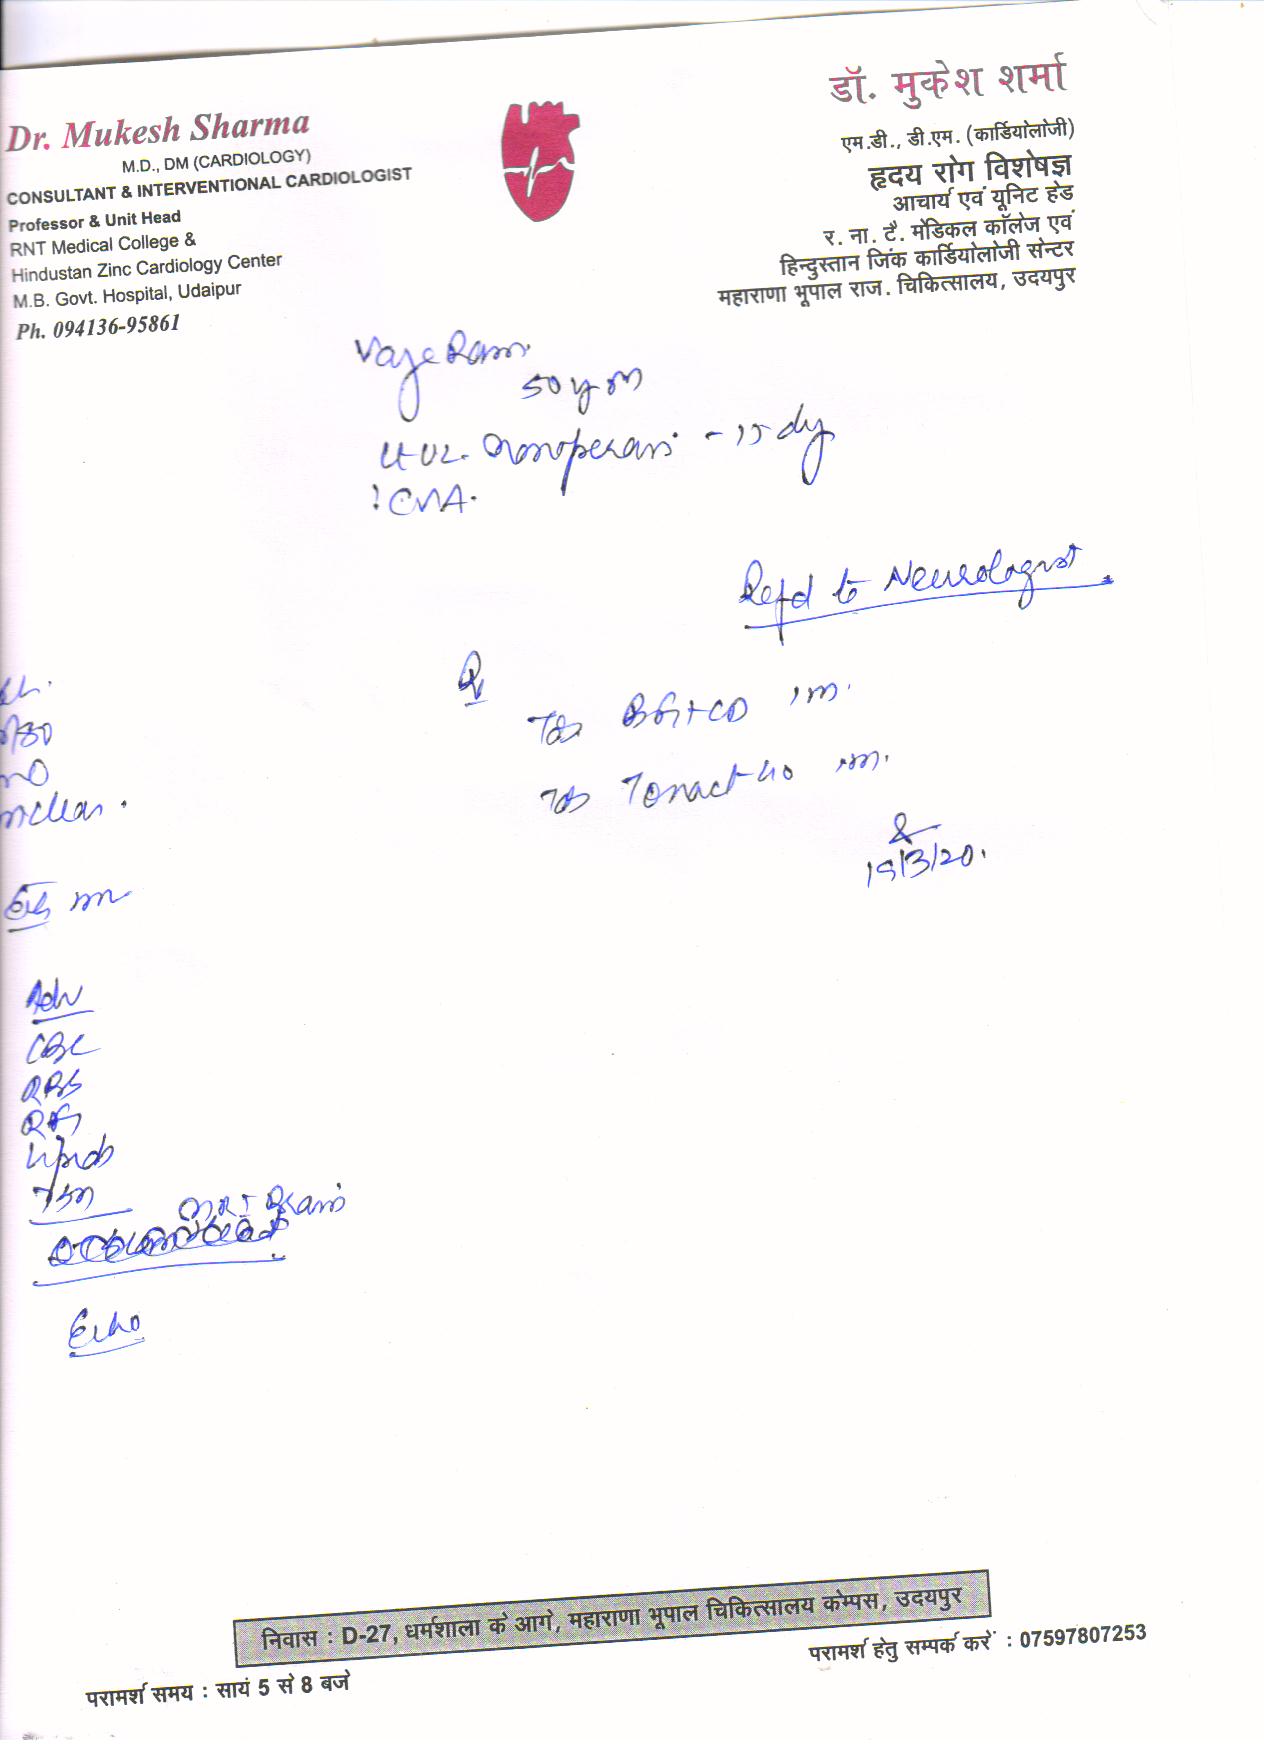 Dr. Mukesh Sharma
M.D., DM (CARDIOLOGY)
CONSULTANT & INTERVENTIONAL CARDIOLOGIST
Professor & Unit Head
RNT Medical College &
Hindustan Zinc Cardiology Center
M.B. Govt. Hospital, Udaipur
Ph. 094136-95861
डॉ. मुकेश शर्मा
एम.डी., डी.एम. (कार्डियोलोजी)
हृदय रोग विशेषज्ञ
आचार्य एवं यूनिट हेड
र. ना. टै. मेडिकल कॉलेज एवं
हिन्दुस्तान जिंक कार्डियोलोजी सेन्टर
महाराणा भूपाल राज. चिकित्सालय, उदयपुर
Ram
50 y m
- 15 dy
Refd to Neurologist
/80
clear.
Adv
CBC
RBS
RFT
Lipid
MRI Brain
Echo
Tab
Tab Tonact 40
/3/20.
निवास : D-27, धर्मशाला के आगे, महाराणा भूपाल चिकित्सालय केम्पस, उदयपुर
परामर्श समय : सायं 5 से 8 बजे
परामर्श हेतु सम्पर्क करें : 07597807253